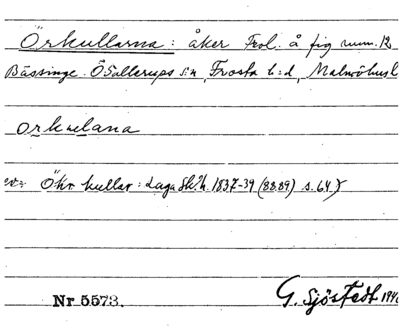 Örkullarna: åker Frel. å fig num. 12
Bässinge Ö Sallerups s:n, Frosta h:d, Malmöhus l
orkulana
Ökr kullar: Laga Sk. h. 1837-39 (88.89) s. 64
Nr. 5573. G. Sjöstedt 194